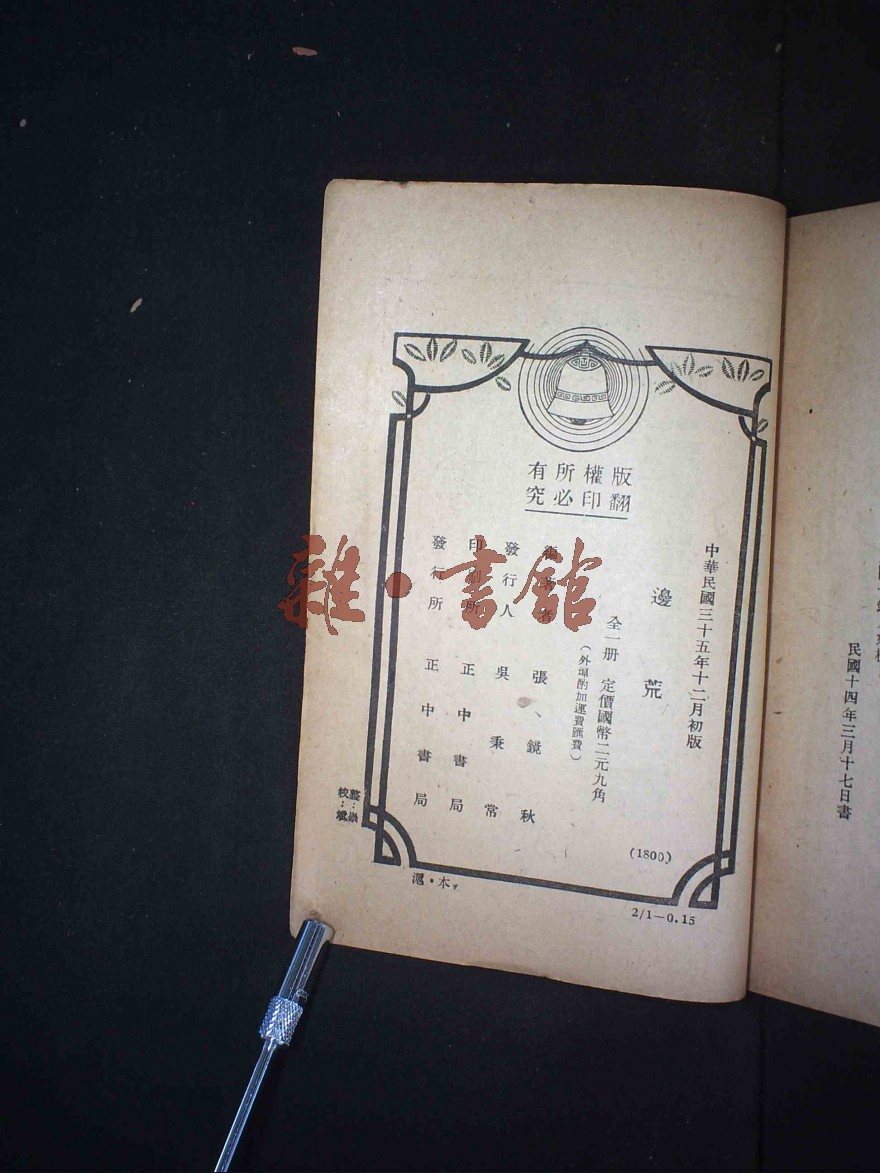 版權所有
翻印必究
中華民國三十五年十二月初版
邊荒
全一册 定價國幣二元九角
(外埠酌加運費匯費)
編著者 張鏡秋
發行人 吳秉常
印刷所 正中書局
發行所 正中書局
(1800)
校:
滬・本
2/1—0.15
民國十四年三月十七日書
雜・書館